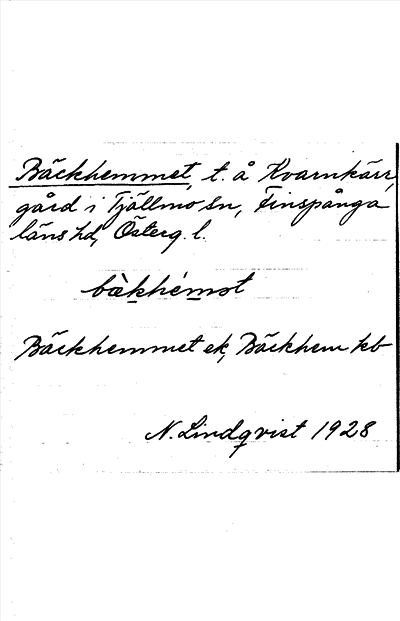 Bäckhemmet, t. å Kvarnkärr,
gård i Tjällmo sn, Finspånga
läns hd, Österg. l.
bàkhémot
Bäckhemmet ek, Bäckhem kb
N. Lindqvist 1928